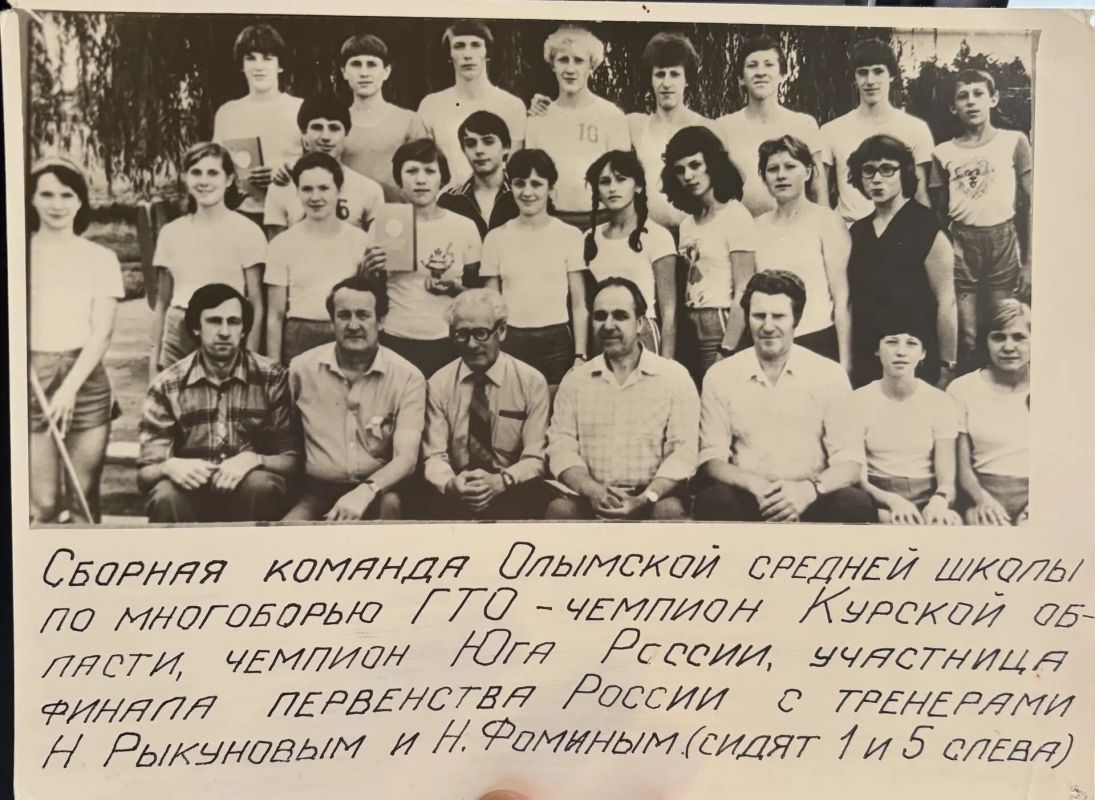 10
Сборная команда Олымской средней школы
по многоборью ГТО – чемпион Курской об-
ласти, чемпион Юга России, участница
финала первенства России с тренерами
Н Рыкуновым и Н. Фоминым. (сидят 1 и 5 слева)